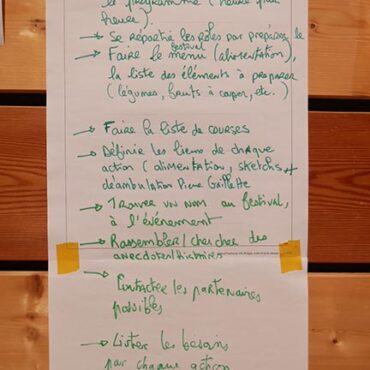 le programme (heure par
heure).
→ Se répartir les rôles par préparer le
festival
→ Faire le menu (alimentation),
la liste des éléments à préparer
(légumes, fruits à couper, etc.)
→ Faire la liste de courses
→ Définir les lieux de chaque
action (alimentation, sketchs et
déambulation Pierre Griffette
→ Trouver un nom au festival,
à l'événement
→ Rassembler/chercher des
anecdotes/histoires
→ Contacter les partenaires
possibles
→ Lister les besoins
par chaque action